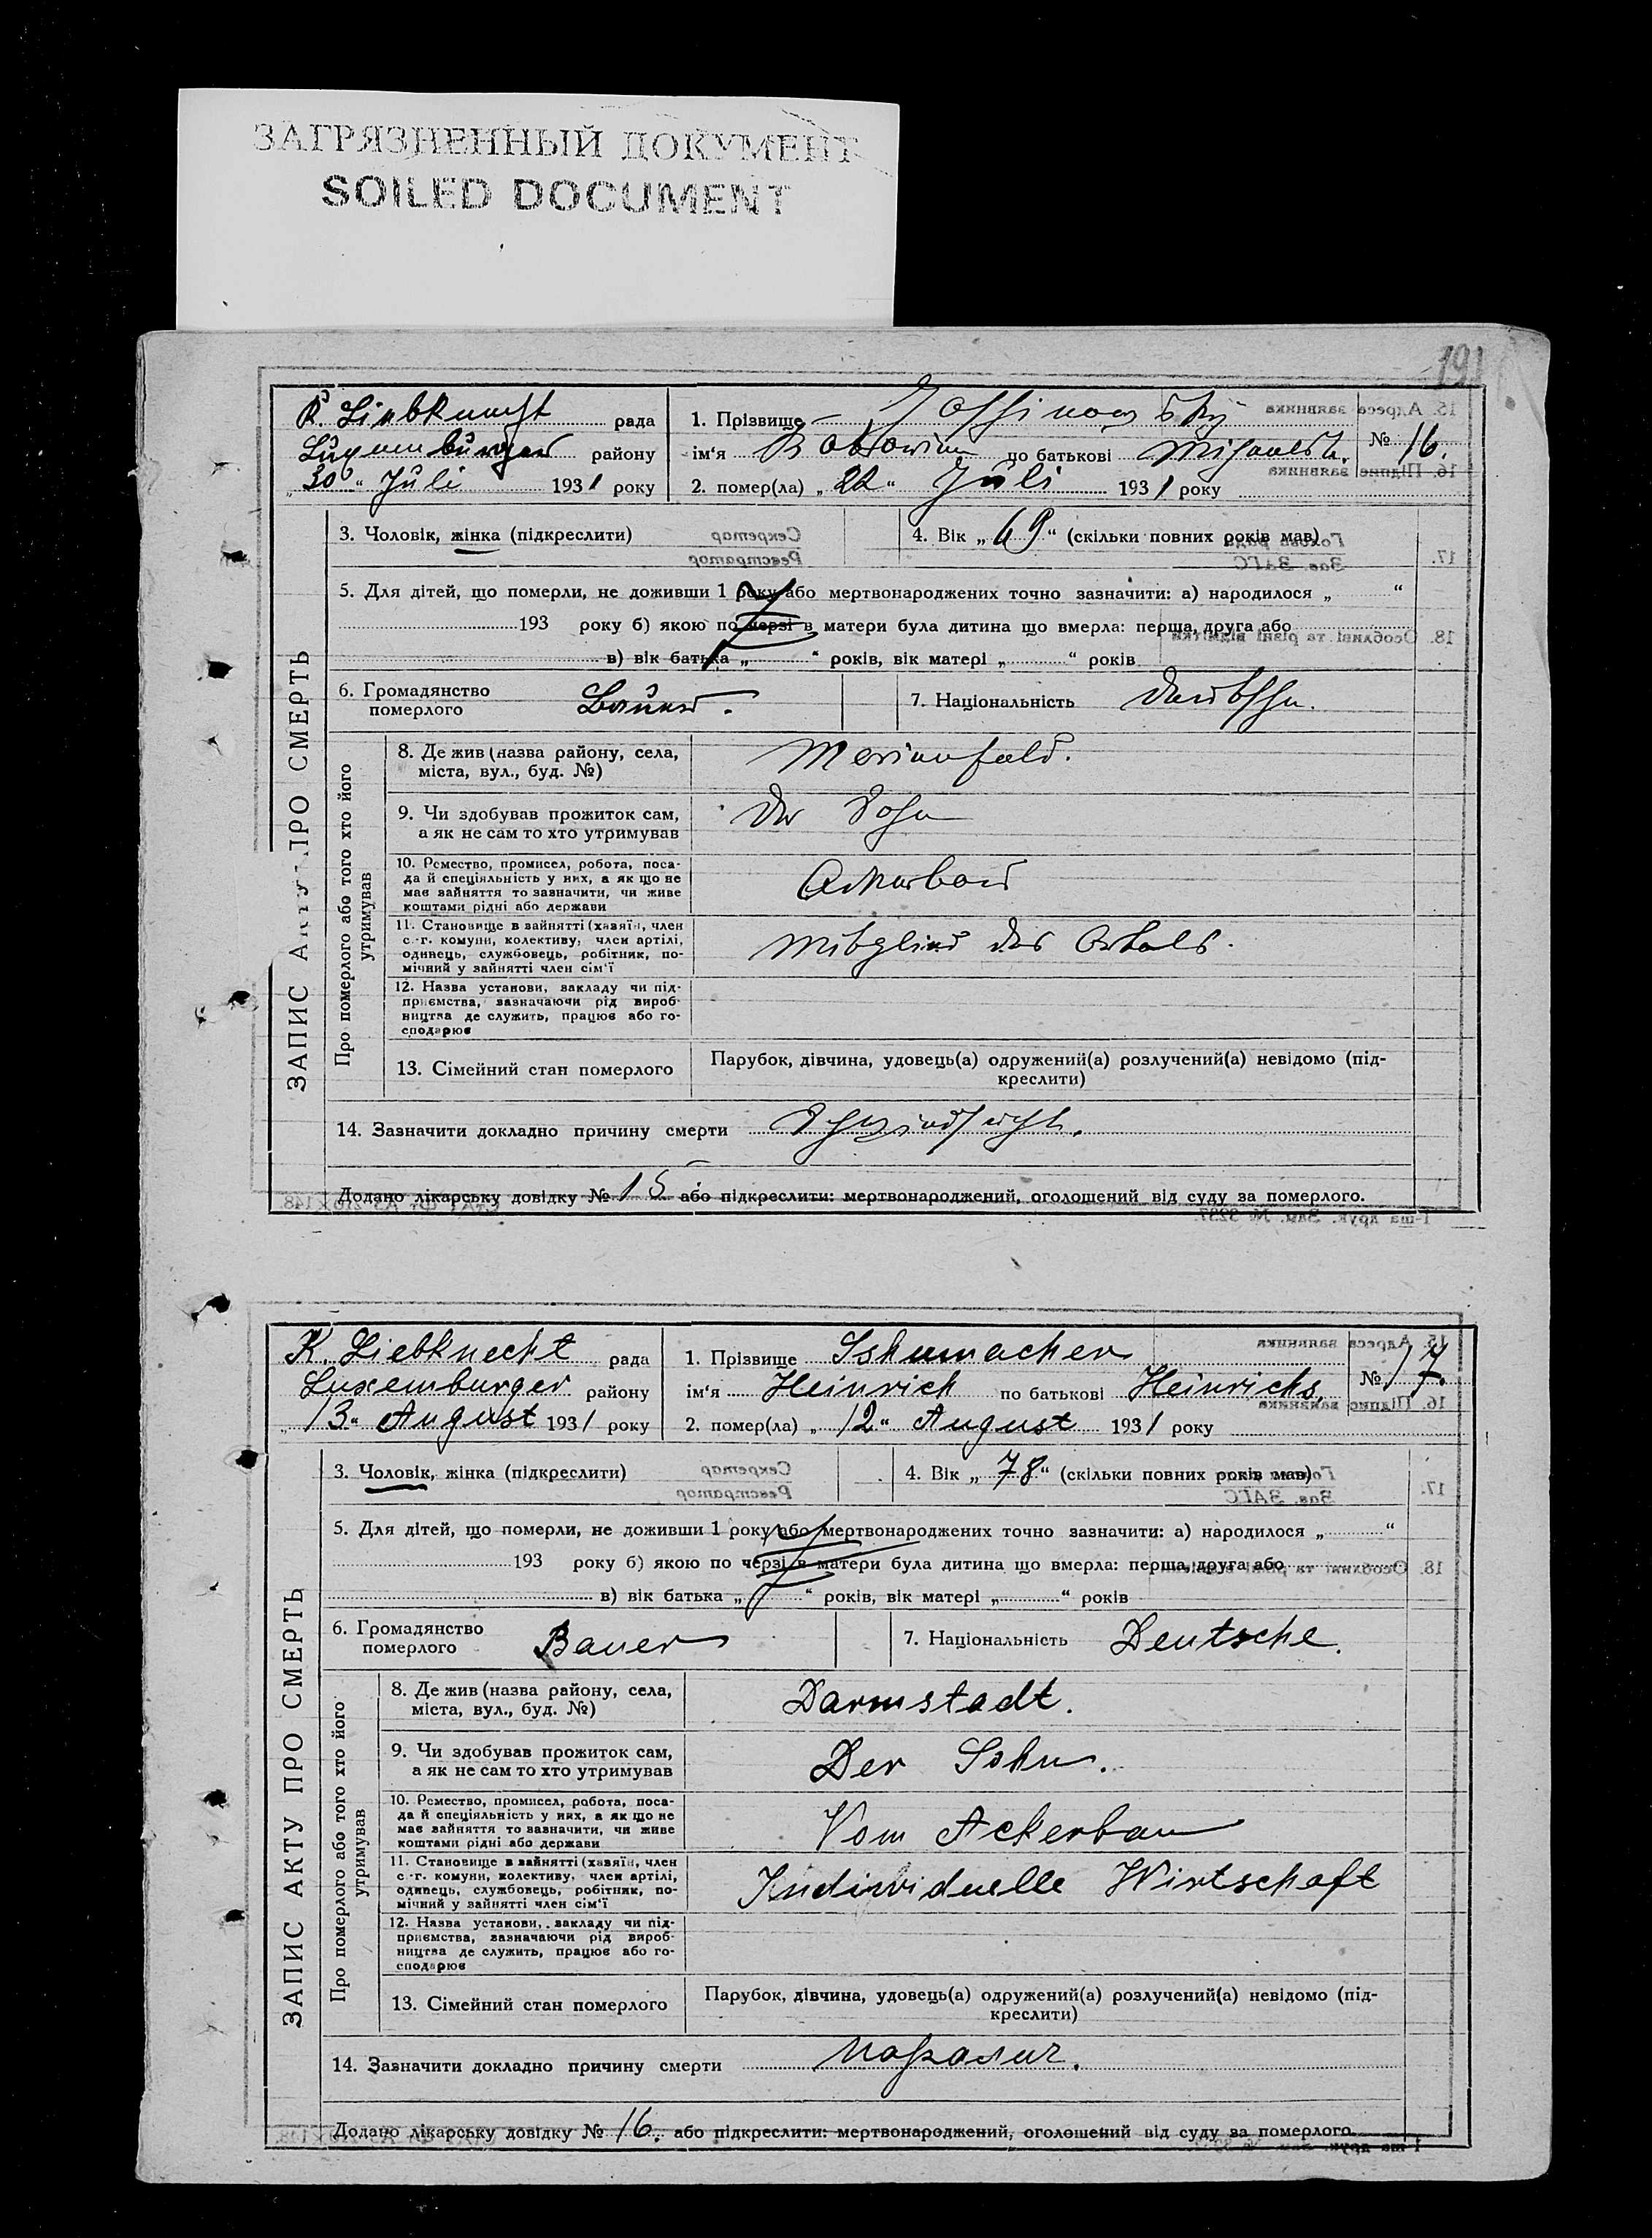 ЗАГРЯЗНЕННЫЙ ДОКУМЕНТ
SOILED DOCUMENT
191
ЗАПИС АКТУ ПРО СМЕРТЬ
K. Liebknecht рада
Luxemburger району
„30“ Juli 1931 року
1. Прізвище
ім‘я по батькові
№ 16.
2. помер(ла) „22“ Juli 1931 року
3. Чоловік, жінка (підкреслити)
4. Вік „69“ (скільки повних років мав)
5. Для дітей, що померли, не доживши 1 року або мертвонароджених точно зазначити: а) народилося „ “
193 року б) якою по черзі в матери була дитина що вмерла: перша, друга або
в) вік батька „ “ років, вік матері „ “ років
6. Громадянство померлого Bauer.
7. Національність Deutsche.
Про померлого або того хто його утримував
8. Де жив (назва району, села,
міста, вул., буд. №)
Marienfeld.
9. Чи здобував прожиток сам,
а як не сам то хто утримував
Der Sohn
10. Ремество, промисел, робота, поса-
да й спеціяльність у них, а як що не
має зайняття то зазначити, чи живе
коштами рідні або держави
Ackerbau
11. Становище в зайнятті (хазяїн, член
с.-г. комуни, колективу, член артілі,
одинець, службовець, робітник, по-
мічний у зайнятті член сім‘ї
Mitglied des Artels.
12. Назва установи, закладу чи під-
приємства, зазначаючи рід вироб-
ництва де служить, працює або го-
сподарює
13. Сімейний стан померлого
Парубок, дівчина, удовець(а) одружений(а) розлучений(а) невідомо (під-
креслити)
14. Зазначити докладно причину смерти Schwindsucht.
Додано лікарську довідку № 15 або підкреслити: мертвонароджений, оголошений від суду за померлого.
ЗАПИС АКТУ ПРО СМЕРТЬ
K. Liebknecht рада
Luxemburger району
„13“ August 1931 року
1. Прізвище Schumacher
ім‘я Heinrich по батькові Heinrichs,
№ 17.
2. помер(ла) „12“ August 1931 року
3. Чоловік, жінка (підкреслити)
4. Вік „78“ (скільки повних років мав)
5. Для дітей, що померли, не доживши 1 року або мертвонароджених точно зазначити: а) народилося „ “
193 року б) якою по черзі в матери була дитина що вмерла: перша, друга або
в) вік батька „ “ років, вік матері „ “ років
6. Громадянство померлого Bauer
7. Національність Deutsche.
Про померлого або того хто його утримував
8. Де жив (назва району, села,
міста, вул., буд. №)
Darmstadt.
9. Чи здобував прожиток сам,
а як не сам то хто утримував
Der Sohn.
10. Ремество, промисел, робота, поса-
да й спеціяльність у них, а як що не
має зайняття то зазначити, чи живе
коштами рідні або держави
Vom Ackerbau
11. Становище в зайнятті (хазяїн, член
с.-г. комуни, колективу, член артілі,
одинець, службовець, робітник, по-
мічний у зайнятті член сім‘ї
Individuelle Wirtschaft
12. Назва установи, закладу чи під-
приємства, зазначаючи рід вироб-
ництва де служить, працює або го-
сподарює
13. Сімейний стан померлого
Парубок, дівчина, удовець(а) одружений(а) розлучений(а) невідомо (під-
креслити)
14. Зазначити докладно причину смерти паралич.
Додано лікарську довідку № 16. або підкреслити: мертвонароджений, оголошений від суду за померлого.